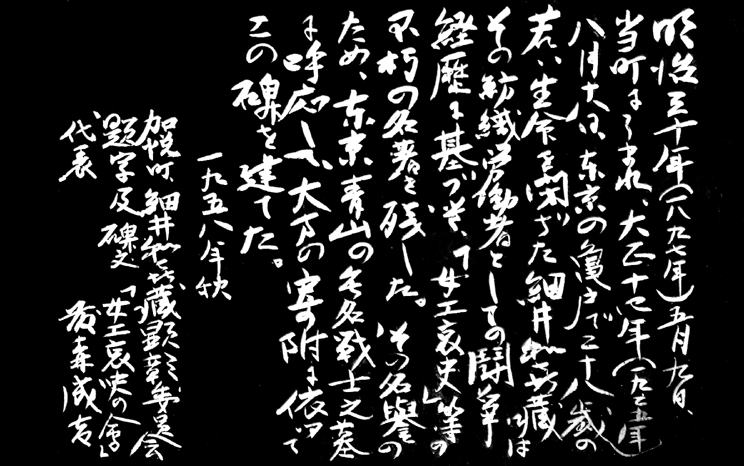 明治三十年(一八九七年)五月九日、
当町にうまれ、大正十四年(一九二五年)
八月十八日、東京の亀戸で二十八歳の
若い生命を閉ざした細井和喜蔵は
その紡織労働者としての闘争
経歴に基づき、「女工哀史」等の
不朽の名著を残した。その名誉の
ため、東京青山の無名戦士之墓
に呼応して、大方の寄附に依って
この碑を建てた。
一九五八年秋
加悦町、細井和喜蔵顕彰委員会
題字及碑文「女工哀史の会」
代表 藤森成吉